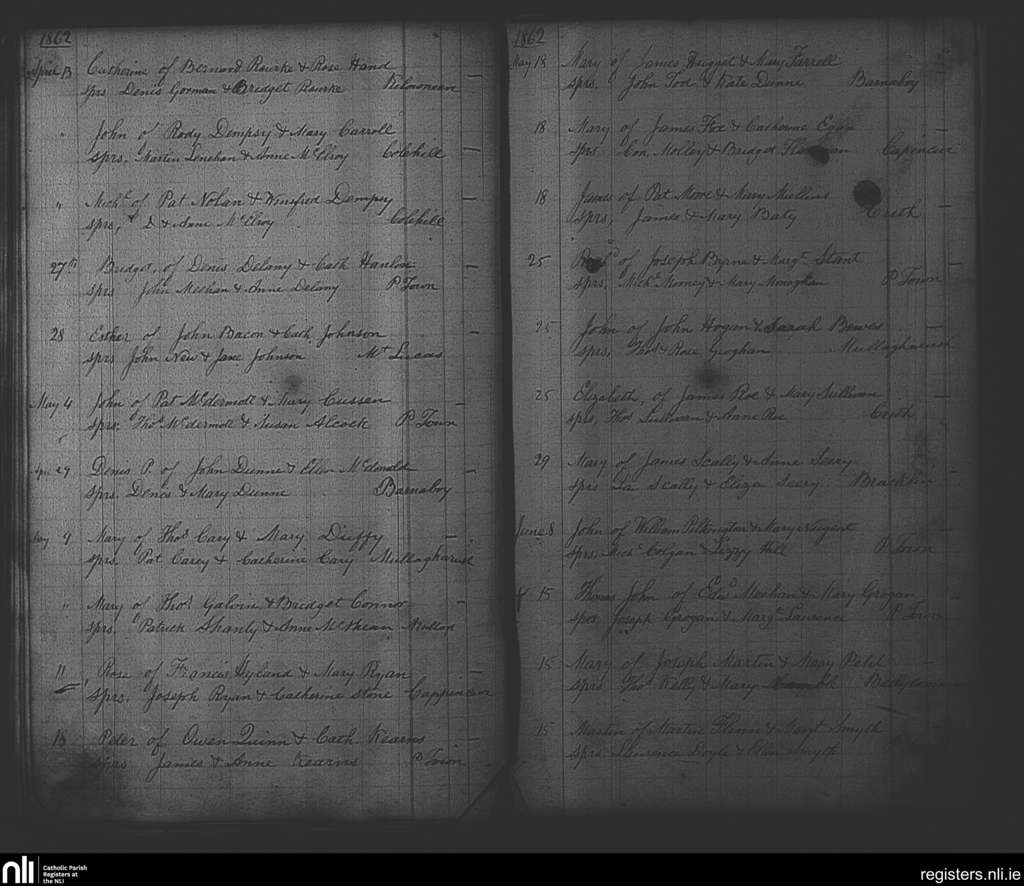 1862
April 13 Catherine of Bernard Rourke & Rose Hand
sprs Denis Gorman & Bridget Rourke
" John of Rody Dempsy & Mary Carroll
sprs. Martin Lenehan & Anne McElroy Colehill
" Michl of Pat Nolan & Winefred Dempsy
sprs, D & Anne McElroy Colehill
27th Bridget of Denis Delany & Cath Hanlon
sprs John Meehan & Anne Delany P. Town
28 Esther of John Bacon & Cath Johnson
sprs John New & Jane Johnson Mt Lucas
May 4 John of Pat McDermott & Mary Cussen
sprs. Thos McDermott & Susan Alcock P. Town
Apr 29 Denis P. of John Dunne & Ellen McDonald
sprs. Denis & Mary Dunne Barnaboy
May 9 Mary of Thos Cary & Mary Duffy
sprs. Pat Carey & Catherine Cary
" Mary of Thos Galvin & Bridget Connor
sprs. Patrick Shanly & Anne
11 Rose of Francis Hyland & Mary Ryan
sprs. Joseph Ryan & Catherine Stone Cappincur
18 Peter of Owen Quinn & Cath Kearns
sprs James & Anne Kearns P. Town
1862
May 18 Mary of James Hugget & Mary Farrell
sprs. John & Kate Dunne Barnaboy
18 Mary of James Fox & Catherine Egan
sprs Con. Molloy & Bridget
18 James of Pat Moore & Mary Mullins
sprs, James & Mary Baty
25 of Joseph Byrne & Margt
sprs, Michl Mooney & Mary P. Town
25 John of John Hogan & Sarah
sprs. Thos & Rose Groghan
25 Elizabeth, of James Roe & Mary Sullivan
sprs, Thos Sullivan & Anne Roe
29 Mary of James Scally & Anne Seery
sprs Scally & Eliza Seery
June 8 John of William Pilkington & Mary Nugent
sprs. Colgan & Lizzy Hill P. Town
15 Thomas John of Edwd Meehan & Mary Grogan
sprs Joseph Grogan & Margt Laurence P. Town
15 Mary of Joseph Martin & Mary
sprs Thos Kelly & Mary
15 Martin of Martin & Smyth
sprs Laurence Doyle & Smyth
nli Catholic Parish
Registers at
the NLI
registers.nli.ie